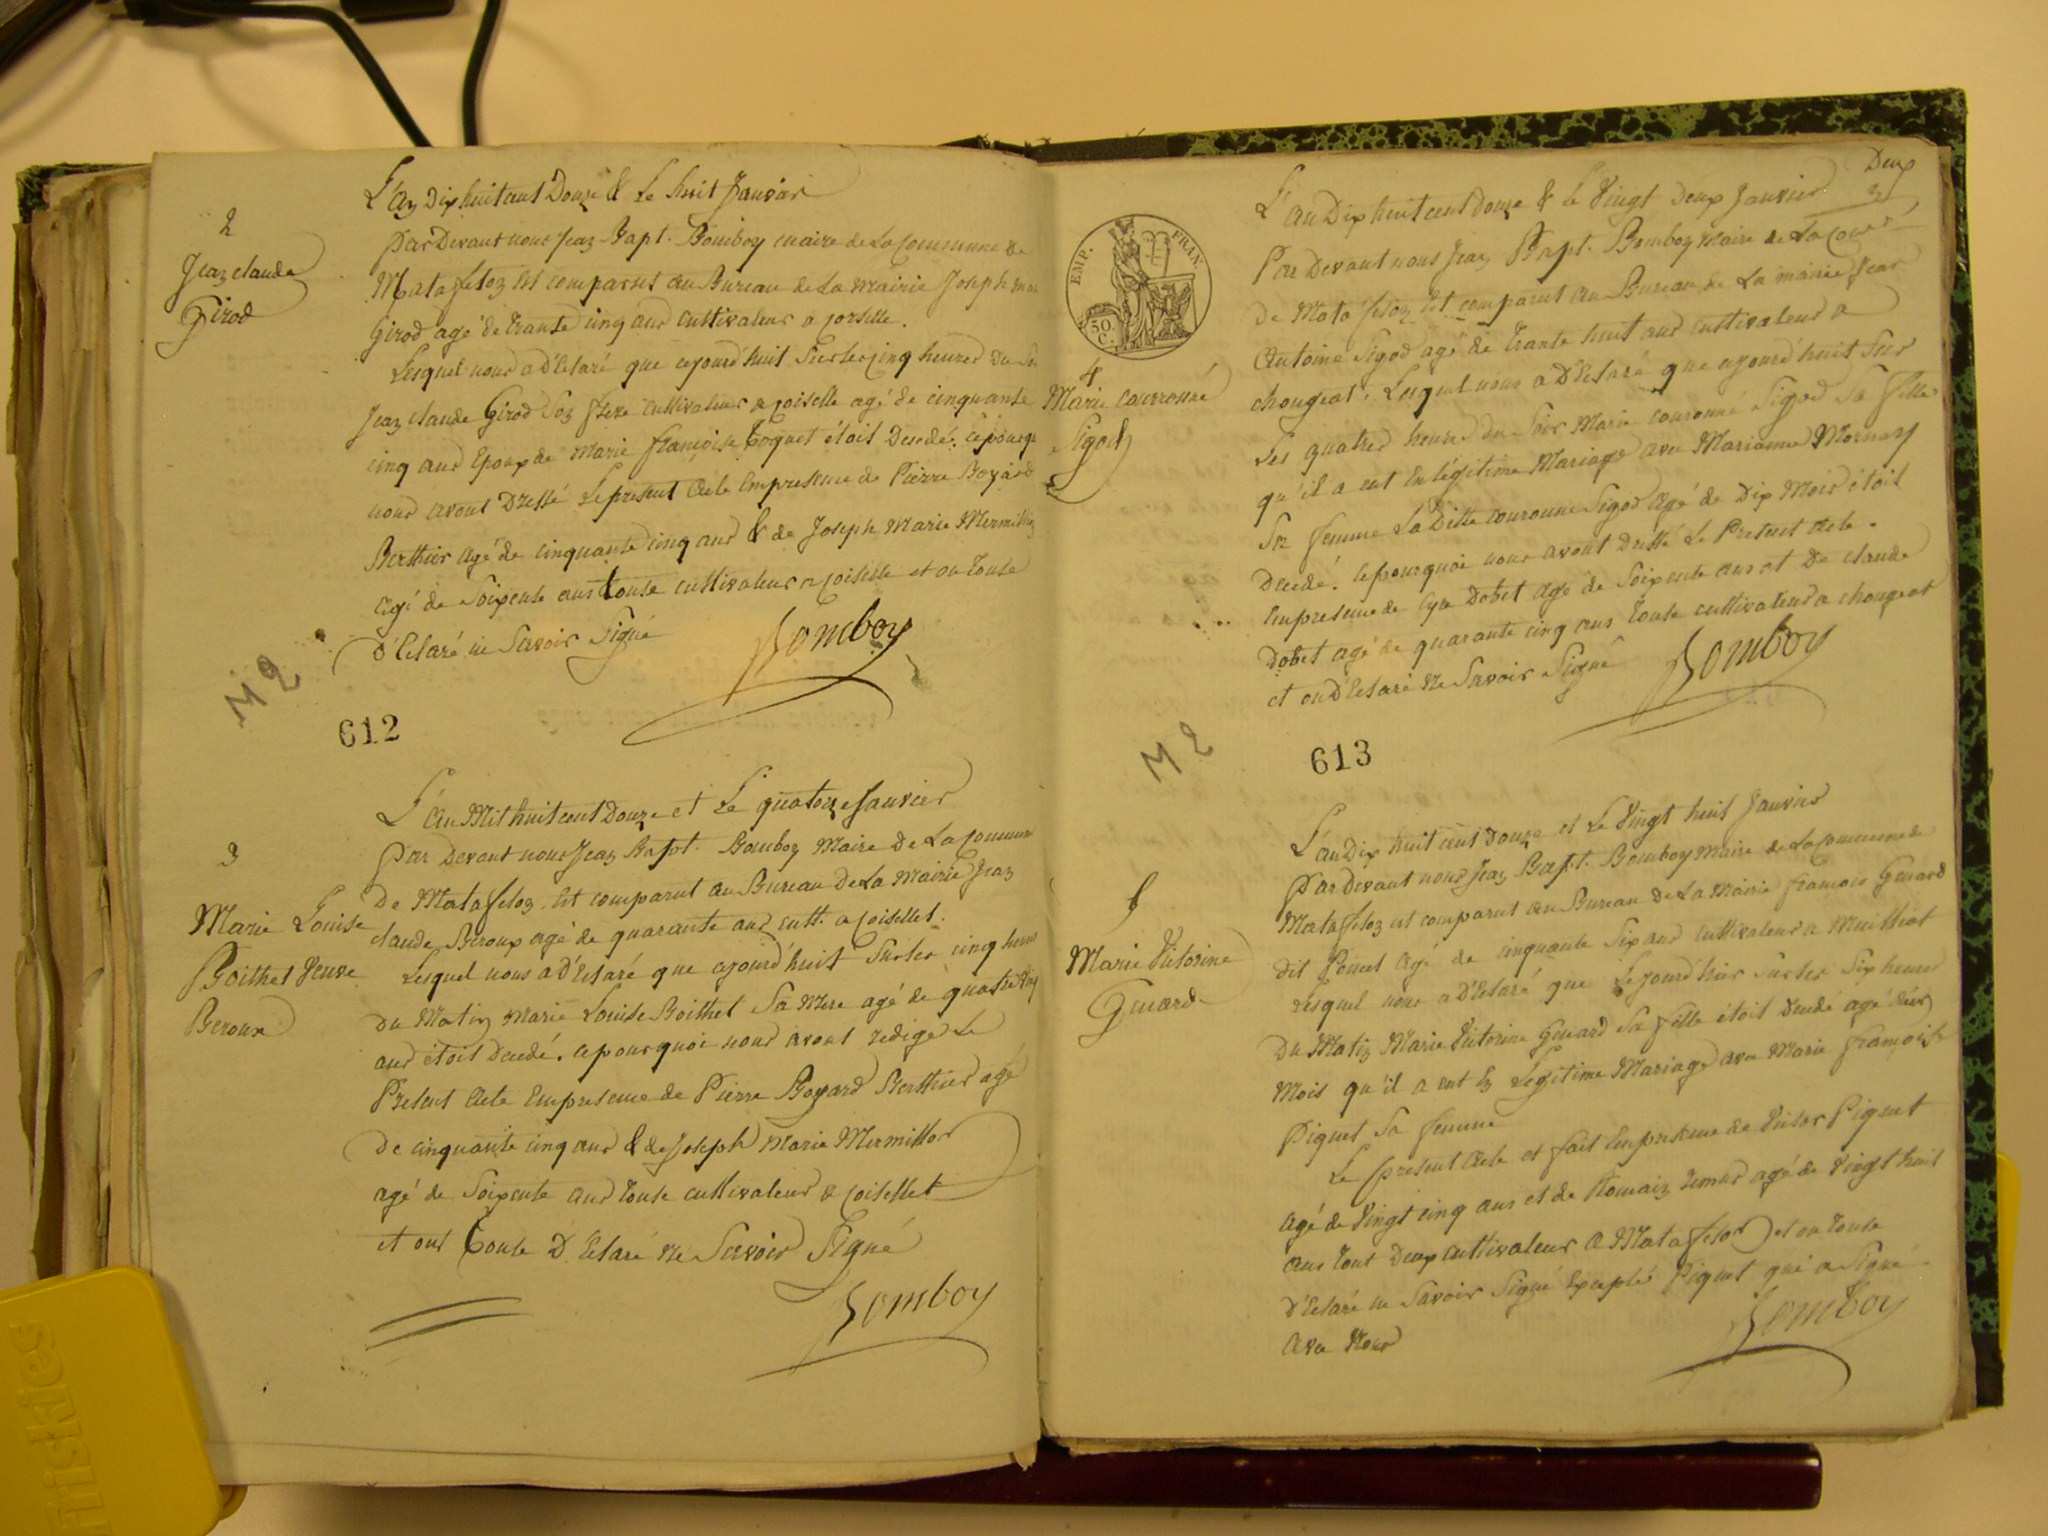 2
Jean claude
Girod
L'an Dix huit cent Douze & Le huit Janvier
Par Devant nous Jean Bapt. Bomboy maire de La Commune de
Matafelon Est comparut au Bureau de La Mairie Joseph mar
Girod agé de trante cinq ans cultivateur a
Lesquel nous a d'Eclaré que cejourd'huit Sur les cinq heures du
Jean claude Girod Son frere cultivateur a Coiselle agé de cinquante
cinq ans Epoux de Marie francoise étoit Decedé. cepourquoi
nous avont Dressé Le present acte Empresence de Pierre Boyard
Berthier agé de cinquante cinq ans & de Joseph Marie Mermillon
agé de Soixente ans touse cultivateur a Coiselle et on touse
d'Eclaré ne Savoir Signé
Bomboy
M 2
612
3
Marie Louise
Boithet Veuve
Beroux
L'an Mil huit cent Douze et Le quatorze Janvier
Par Devant nous Jean Bapt. Bomboy Maire de La Commune
De Matafelon Est comparut au Bureau De La Mairie Jean
claude Beroux agé de quarante ans cult. a Coisellet.
Lesquel nous a d'Eclaré que cejourd'huit Sur les cinq heures
du Matin Marie Louise Boithet Sa Mere agé de quatre
ans étoit Decedé. cepourquoi nous avont redigé Le
Present acte Empresence de Pierre Boyard Berthier agé
de cinquante cinq ans & de Joseph Marie Mermillon
agé de Soixente ans touse cultivateur a Coisellet
et ont touse D'Eclaré Ne Savoir Signé
Bomboy
Deux
2
EMP. FRAN
50.
C.
4
Marie couronné
Sigod
L'an Dix huit cent Douze & le Vingt Deux Janvier
Par Devant nous Jean Bapt. Bomboy Maire de La
de Matafelon Est comparut au Bureau de La mairie Jean
Antoine Sigod agé de trante huit ans cultivateur a
chougeat. Lesquel nous a D'Eclaré que cejourd'huit Sur
Les quatres heures du Soir Marie couronné Sigod Sa fille
qu'il a eut En légitime Mariage avec Marianne Mornay
Sa femme La Ditte couronne Sigod agé de Dix Mois étoit
Decedé. cepourquoi nous avont Dressé Le Present acte.
Empresence de Dobet agé de Soixente ans et De claude
Dobet agé de quarante cinq ans touse cultivateur a chougeat
et on d'Eclaré Ne Savoir Signé
Bomboy
M 2
613
5
Marie Vitorine
Guard
L'an Dix huit cent Douze et Le Vingt huit Janvier
Par Devant nous Jean Bapt. Bomboy maire de La Commune de
Matafelon est comparut au Bureau de La Mairie francois Guard
dit Poncet agé de cinquante Six ans cultivateur a
Lesquel nous a d'Eclaré que Sur les Six heures
Du Matin Marie Vitorine Guard Sa fille étoit Decedé agé
Mois qu'il a eut En Legitime Mariage avec Marie francoise
Piquet Sa femme
Le present acte et fait Empresence de Victor Piquet
agé de Vingt cinq ans et de Romain agé de Vingt huit
ans tout Deux cultivateur a Matafelon et on touse
d'Eclaré ne Savoir Signé Excepté Piquet qui a Signé
avec Nous
Bomboy